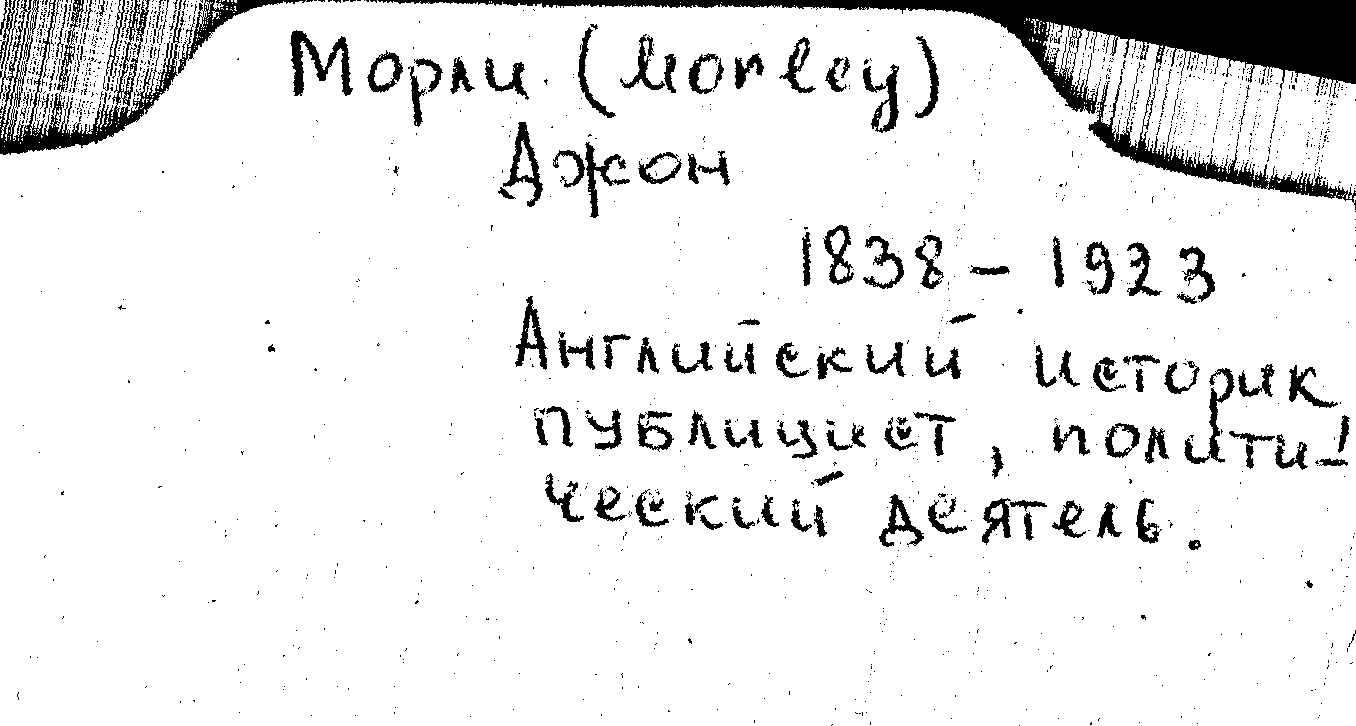 Морли (Morley)
Джон
1838 – 1923
Английский историк
публицист, полити-
ческий деятель.